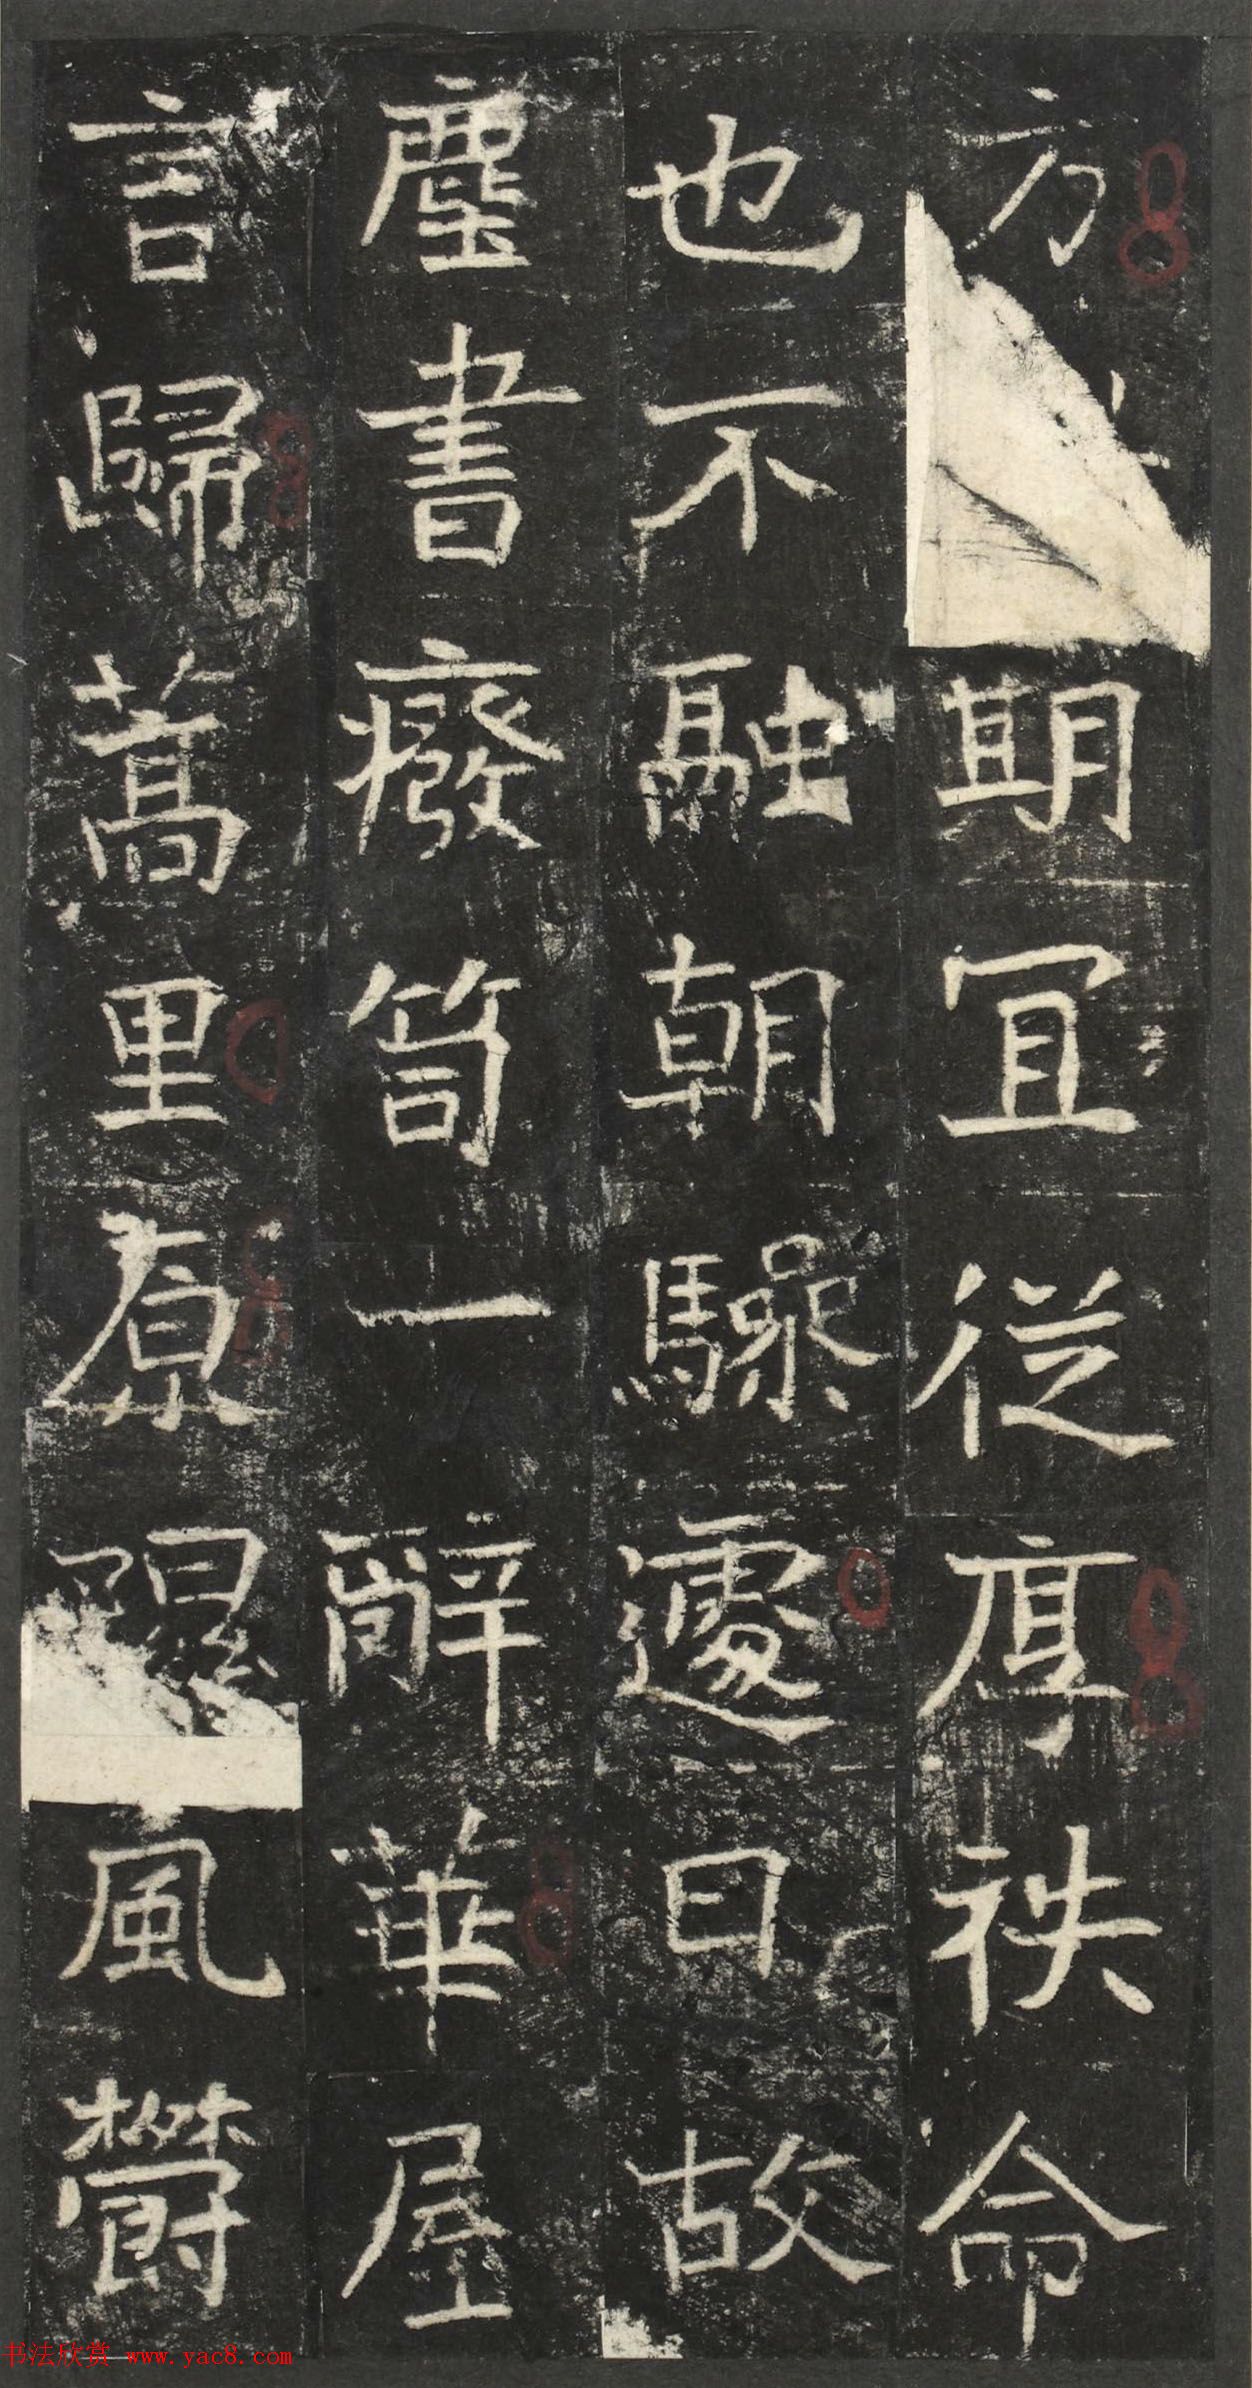 方期宜從厚秩命
也不融朝驂遽曰故
塵書癈笥一辭華屋
言歸蒿里原隰風欝
书法欣赏 www.yac8.com